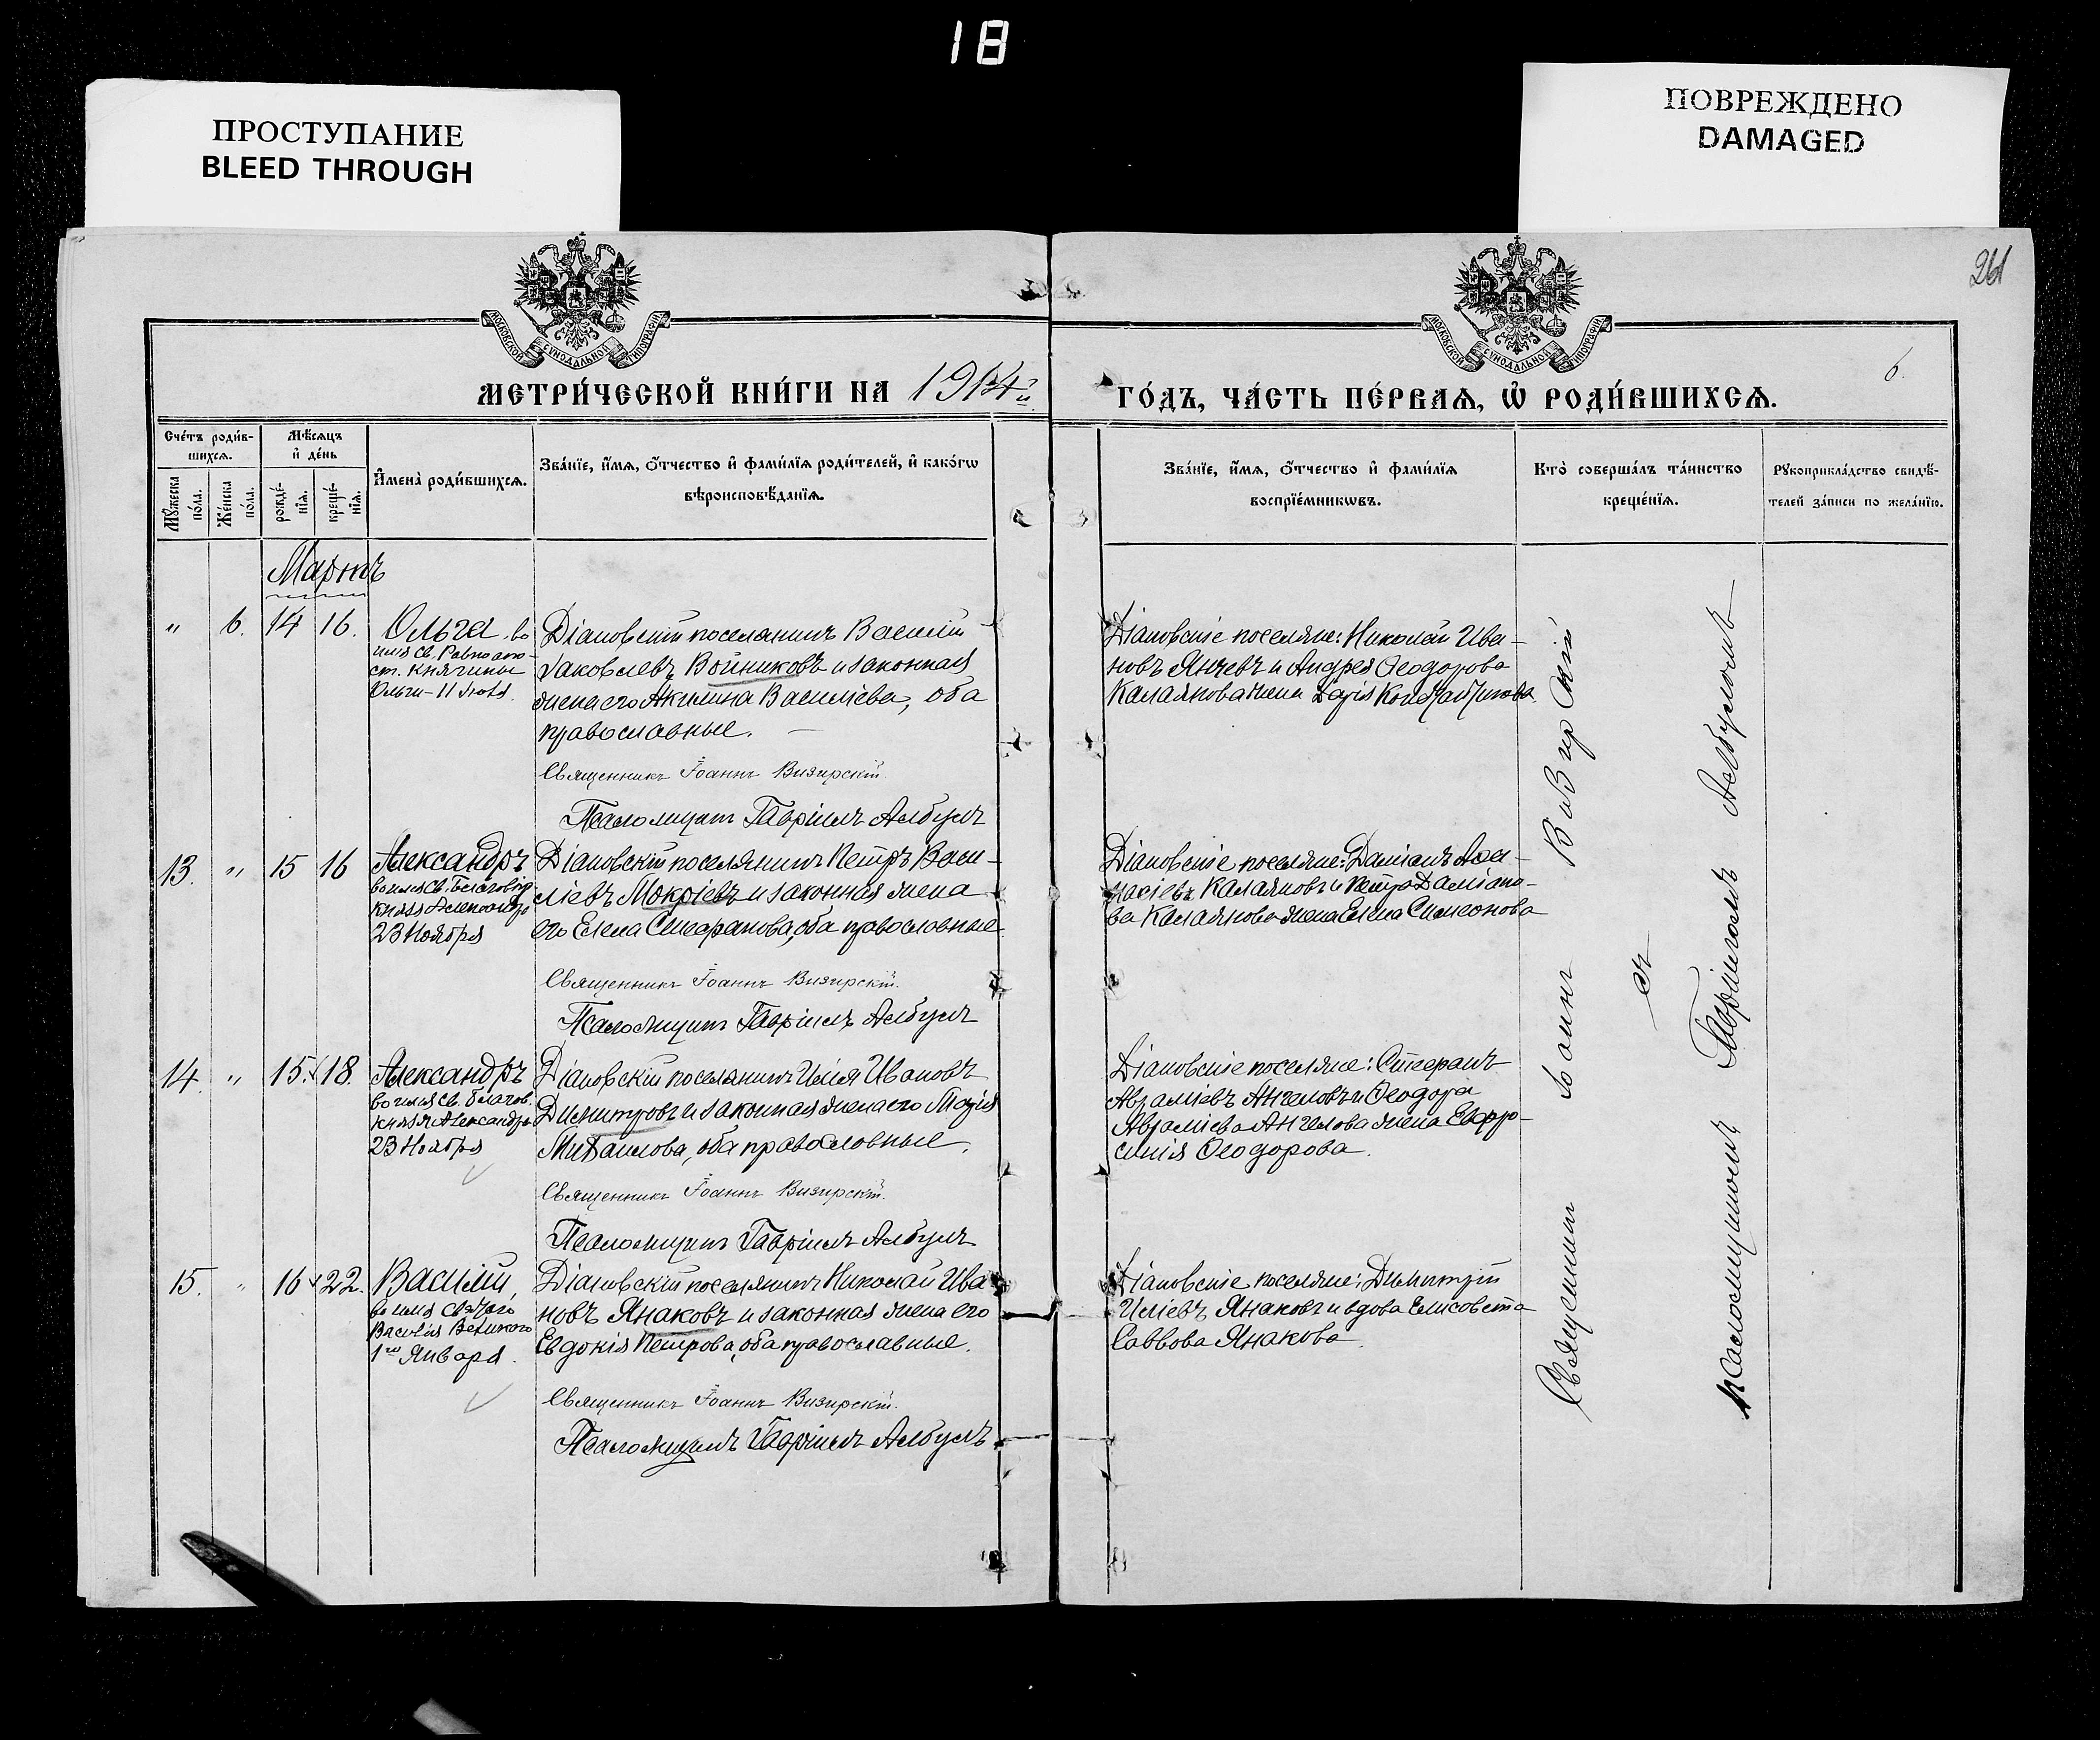 18
ПРОСТУПАНИЕ
BLEED THROUGH
ПОВРЕЖДЕНО
DAMAGED
261
МОСКОВСКОЙ СѴНОДАЛЬНОЙ ТИПОГРАФІИ
МОСКОВСКОЙ СѴНОДАЛЬНОЙ ТИПОГРАФІИ
6.
МЕТРИ́ЧЕСКОЙ КНИ́ГИ НА 1914й
ГО́ДЪ, ЧА́СТЬ ПЕ́РВАЯ, Ѡ҆ РОДИ́ВШИХСЯ.
Сче́тъ роди́в-
шихся.
Мꙋ́жеска по́ла.
Же́нска по́ла.
Мѣ́сяцъ
и҆ де́нь
рожде́-
нїя.
креще́-
нїя.
И҆мена̀ роди́вшихся.
Зва́нїе, и҆́мя, ѻ҆́тчество и҆ фами́лїя роди́телей, и҆ како́гѡ
вѣроисповѣ́данїя.
Зва́нїе, и҆́мя, ѻ҆́тчество и҆ фами́лїя
воспрїе́мникѡвъ.
Кто̀ соверша́лъ та́инство
креще́нїя.
Рꙋкоприкла́дство свидѣ́-
телей за́писи по жела́нїю.
Мартъ
" 6. 14 16.
Ольга во
имя св. Равноапо-
ст. Княгини
Ольги - 11 Іюля.
Діановскій поселянинъ Василій
Іаковлевъ Войниковъ и законная
жена его Акилина Василіева, оба
православные. —
Священникъ Іоаннъ Визирскій.
Псаломщикъ Гавріилъ Албулъ
Діановскіе поселяне: Николай Ива-
новъ Янчевъ и Андрея Ѳеодорова
Калаянова жена Дарія
13. " 15 16
Александръ
во имя св. Благовѣр
князя Александр
23 Ноября
Діановскій поселянинъ Петръ Васи-
ліевъ Мокріевъ и законная жена
его Елена Стефанова, оба православные
Священникъ Іоаннъ Визирскій.
Псаломщикъ Гавріилъ Албулъ
Діановскіе поселяне: Даміанъ Аѳа-
насіевъ Калаяновъ и Петра Даміано-
ва Калаянова жена Елена Симеонова
14. " 15. 18.
Александръ
во имя св. благов.
князя Александра
23 Ноября
Діановскій поселянинъ Илія Ивановъ
Димитровъ и законная жена его Марія
Михаилова, оба православные.
Священникъ Іоаннъ Визирскій.
Псаломщикъ Гавріилъ Албулъ
Діановскіе поселяне: Стефанъ
Авраміевъ Ангеловъ и Ѳеодора
Авраміева Ангелова жена Евфро-
синія Ѳеодорова.
15. " 16 22.
Василій,
во имя святаго
Василія Великого
1го Января.
Діановскій поселянинъ Николай Ива
новъ Янаковъ и законная жена его
Евдокія Петрова, оба православные.
Священникъ Іоаннъ Визирскій.
Псаломщикъ Гавріилъ Албулъ
Діановскіе поселяне: Димитрій
Иліевъ Янаковъ и вдова Елисавета
Саввова Янакова.
Священникъ Іоаннъ Визирскій
съ
псаломщикомъ Гавріиломъ Албуломъ